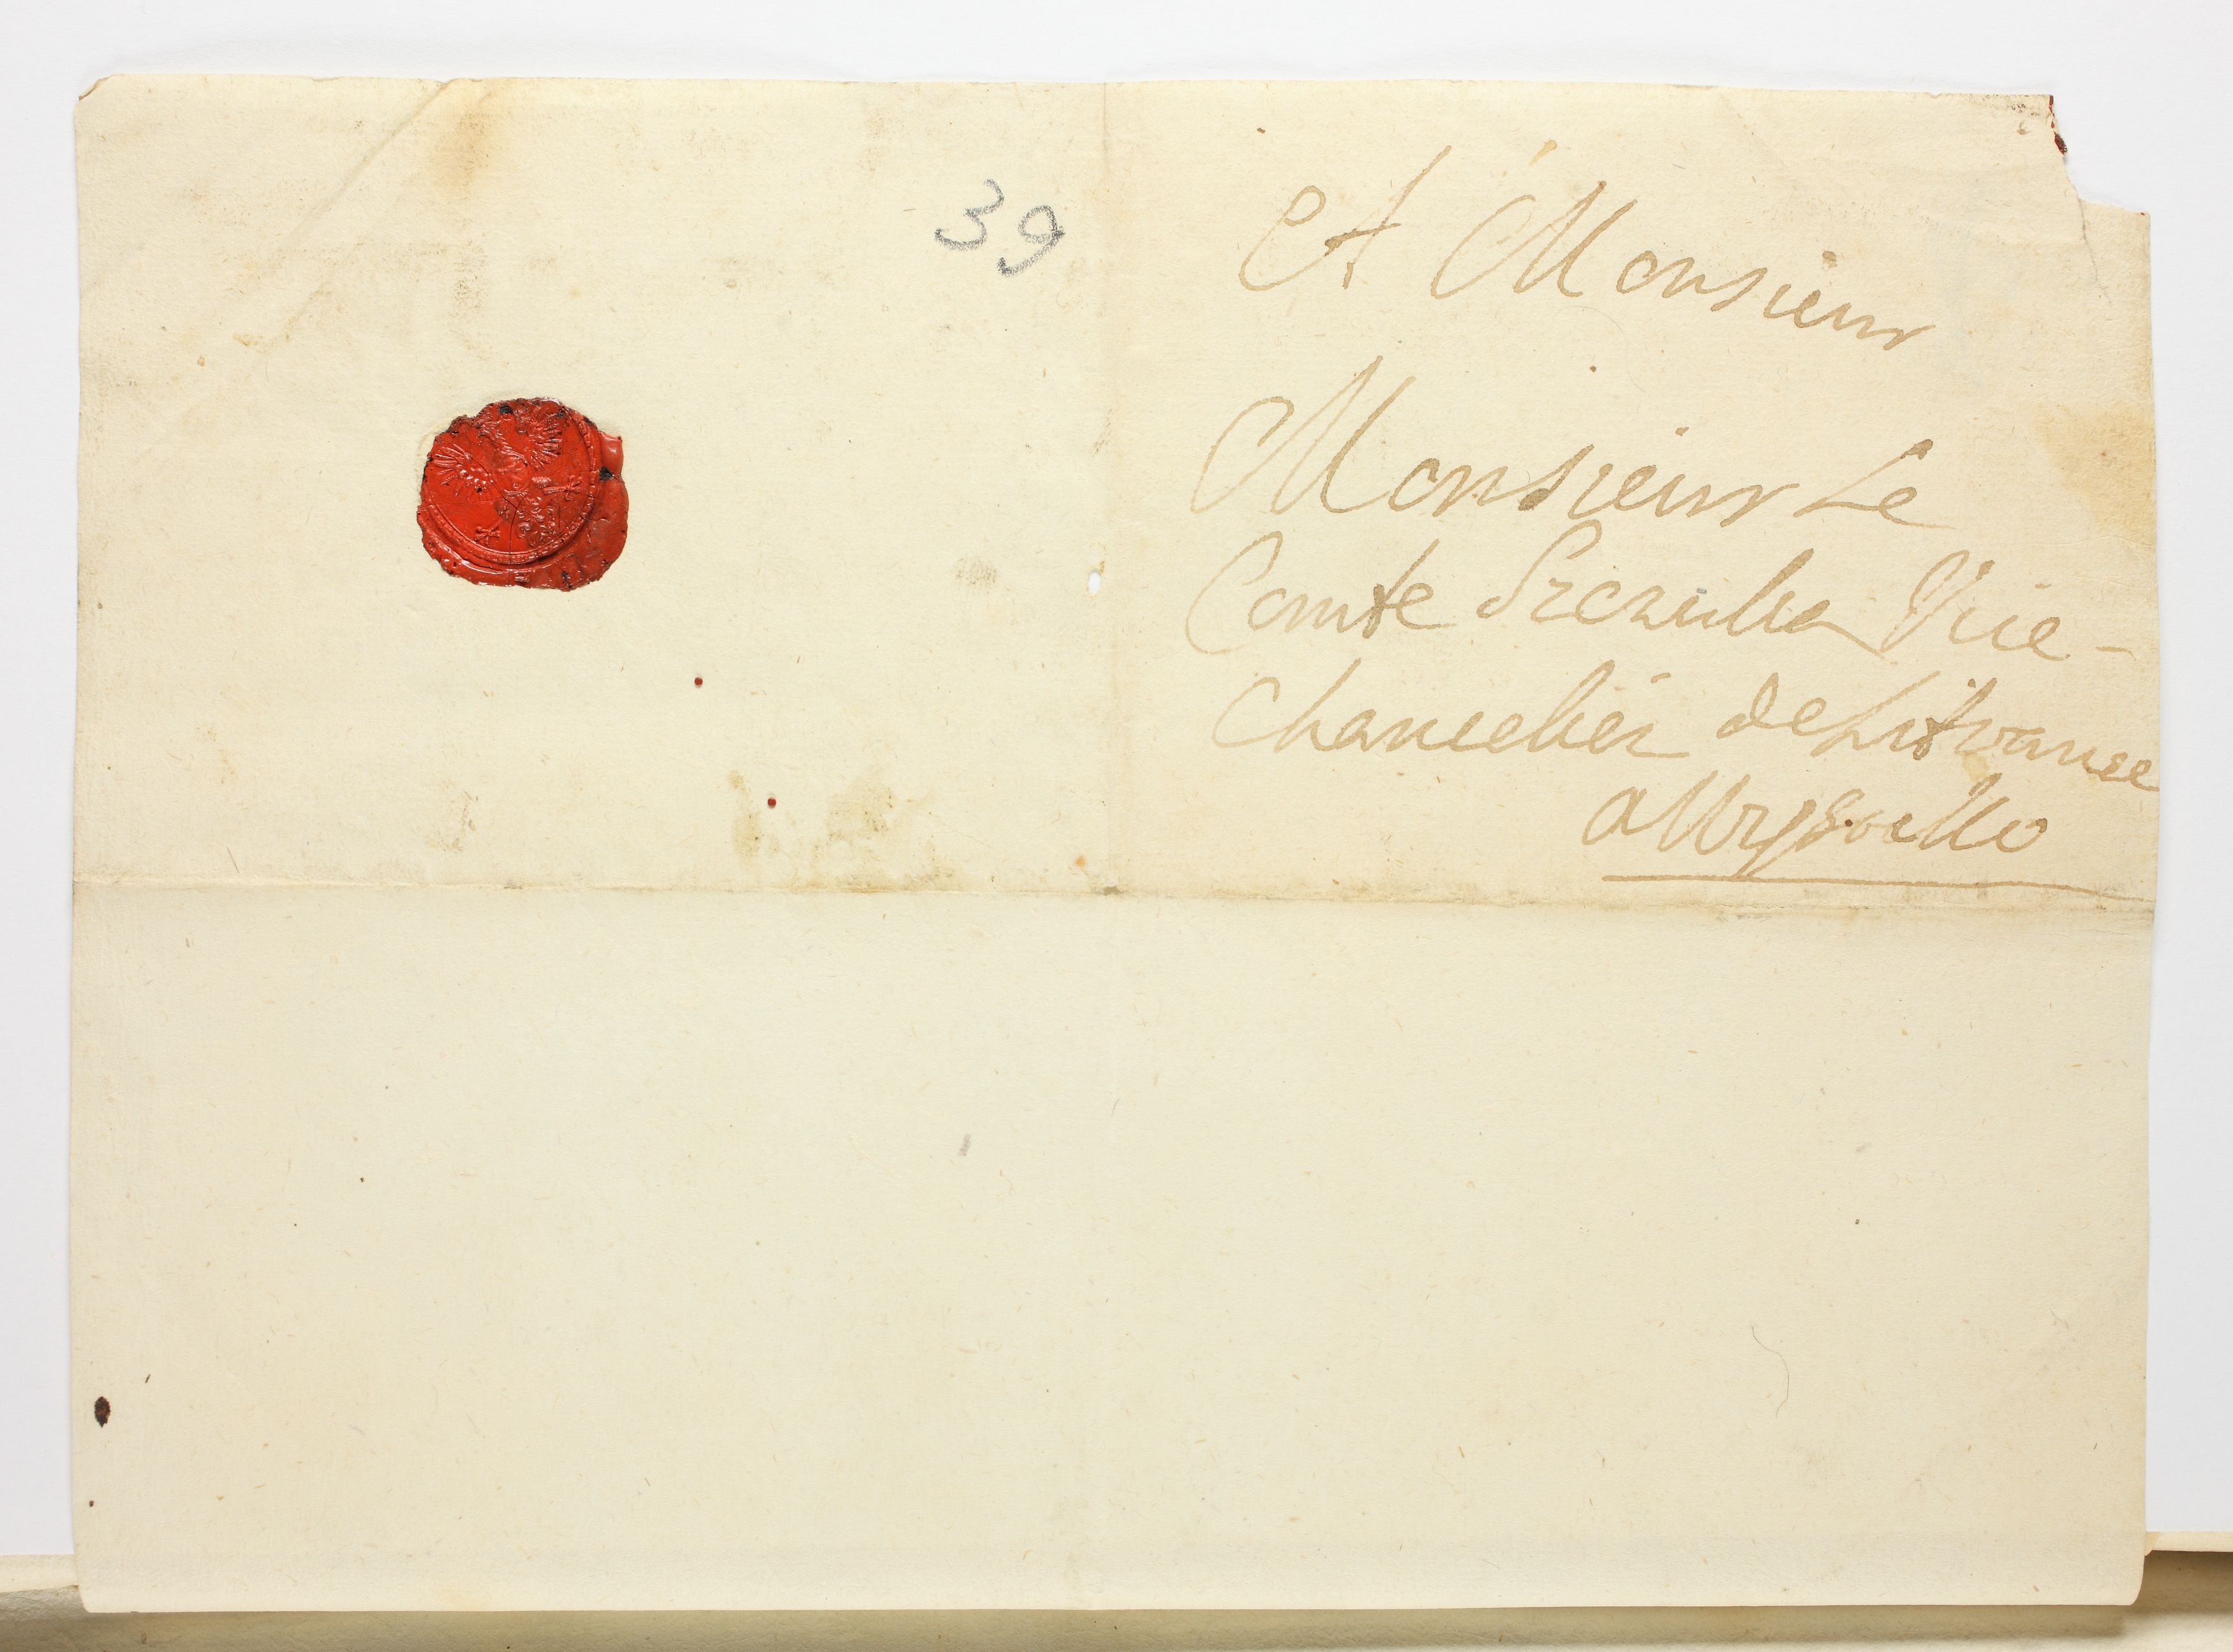 39
A Monsieur
Monsieur Le
Comte Szczuka Vice-
Chancelier de Lithuanie
a